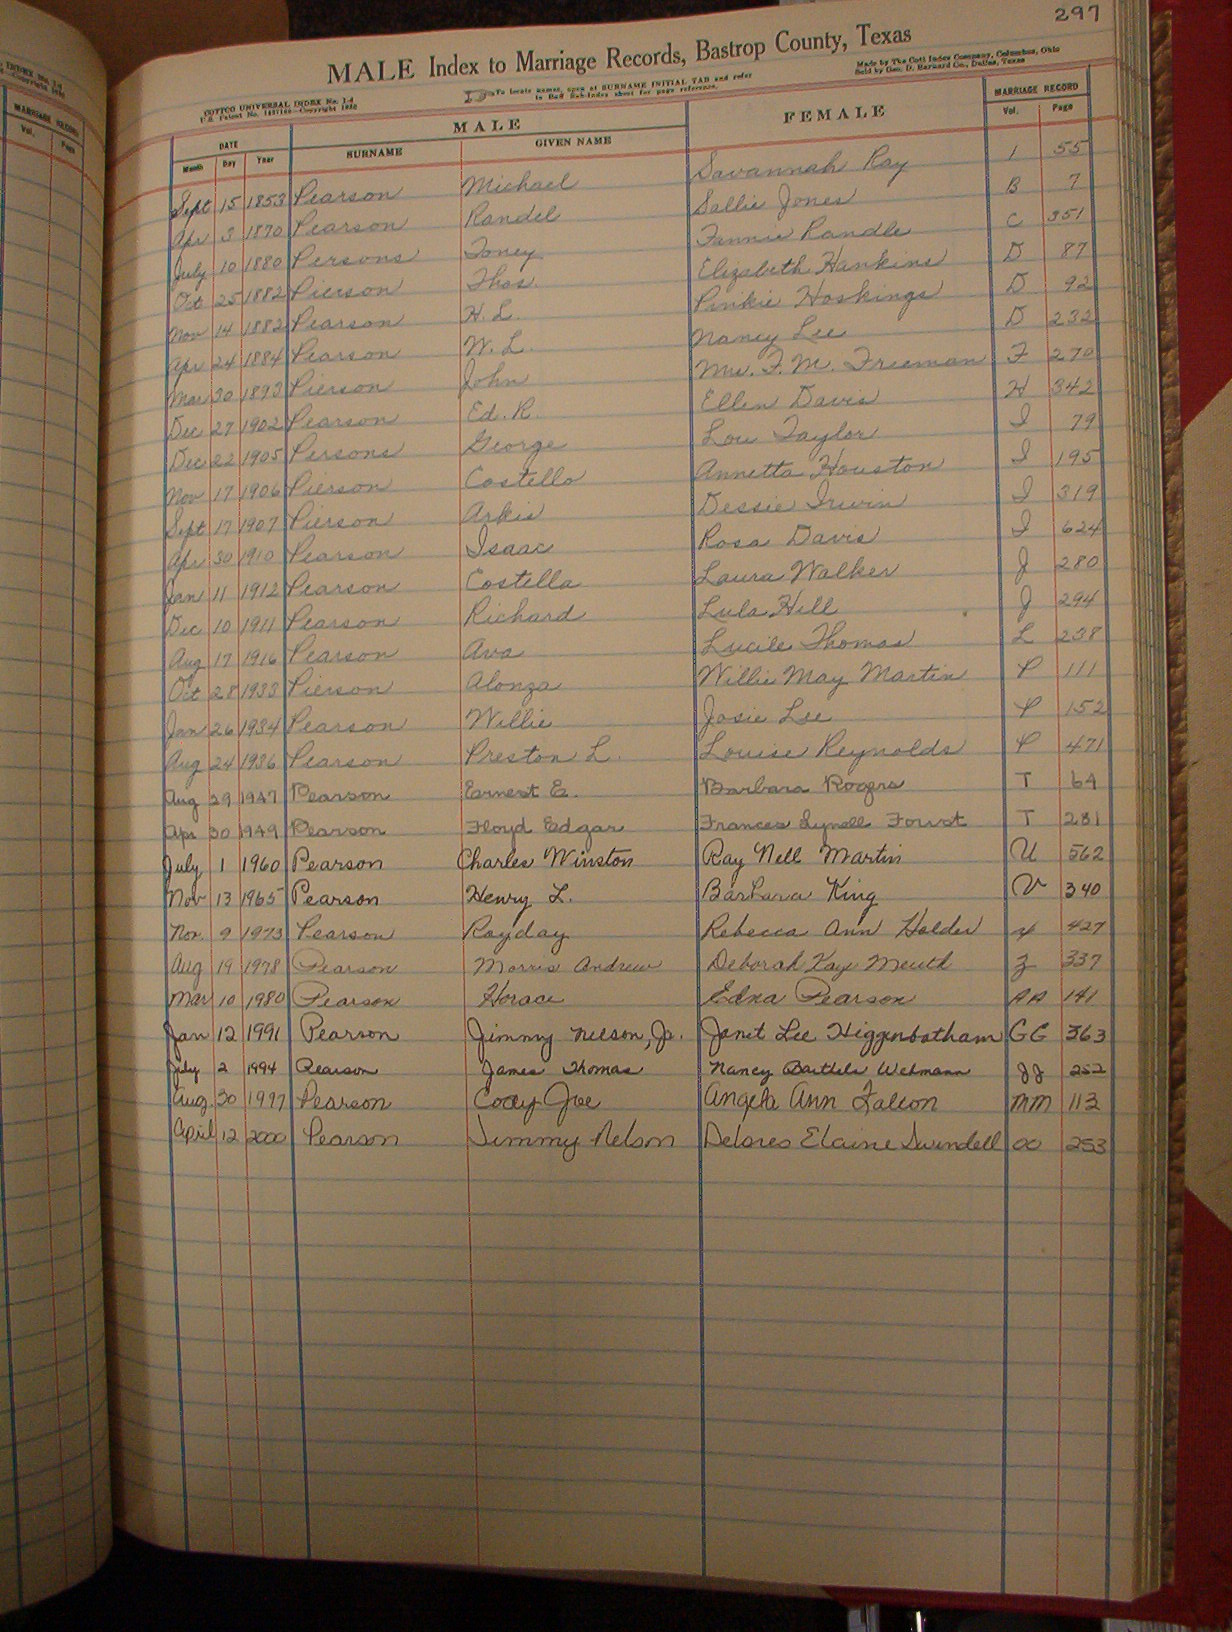 297
MALE Index to Marriage Records, Bastrop County, Texas
COTTCO UNIVERSAL INDEX No. 1-d
To locate names, open at SURNAME INITIAL TAB and refer
Made by The Cott Index Company, Columbus, Ohio
Sold by Geo. D. Barnard Co., Dallas, Texas
DATE MALE FEMALE MARRIAGE RECORD
Month Day Year SURNAME GIVEN NAME Vol. Page
Sept 15 1853 Pearson Michael Savannah Ray 1 55
Apr 3 1870 Pearson Randel Sallie Jones B 7
July 10 1880 Persons Toney Fannie Randle C 351
Oct 25 1882 Pierson Thos. Elizabeth Hankins D 87
Nov 14 1882 Pearson H. L. Pinkie Hoskings D 92
Apr 24 1884 Pearson W. L. Nancy Lee D 232
Mar 30 1893 Pierson John Mrs. F. M. Freeman F 270
Dec 27 1902 Pearson Ed. R. Ellen Davis H 342
Dec 22 1905 Persons George Lou Taylor I 79
Nov 17 1906 Pierson Costello Annetta Houston I 195
Sept 17 1907 Pierson Arkie Dessie Irwin I 319
Apr 30 1910 Pearson Isaac Rosa Davis I 624
Jan 11 1912 Pearson Costella Laura Walker J 280
Dec 10 1911 Pearson Richard Lula Hill J 294
Aug 17 1916 Pearson Ava Lucile Thomas L 238
Oct 28 1933 Pierson Alonza Willie May Martin P 111
Jan 26 1934 Pearson Willie Josie Lee P 152
Aug 24 1936 Pearson Preston L. Louise Reynolds P 471
Aug 29 1947 Pearson Ernest E. Barbara Rogers T 64
Apr 30 1949 Pearson Floyd Edgar Frances Lynell T 281
July 1 1960 Pearson Charles Winston Ray Nell Martin U 562
Nov 13 1965 Pearson Henry L. Barbara King V 340
Nov. 9 1973 Pearson Rayday Rebecca Ann Holder 427
Aug 19 1978 Pearson Morris Andrew Deborah Kay Meuth Z 337
Mar 10 1980 Pearson Horace Edna Pearson AA 141
Jan 12 1991 Pearson Jimmy Nelson, Jr. Janet Lee Higgenbotham GG 363
July 2 1994 Pearson James Thomas Nancy JJ 252
Aug. 30 1997 Pearson Cody Joe Angela Ann Falcon MM 113
April 12 2000 Pearson Jimmy Nelson Delores Elaine Swindell OO 253
MARRIAGE RECORD
Vol. Page